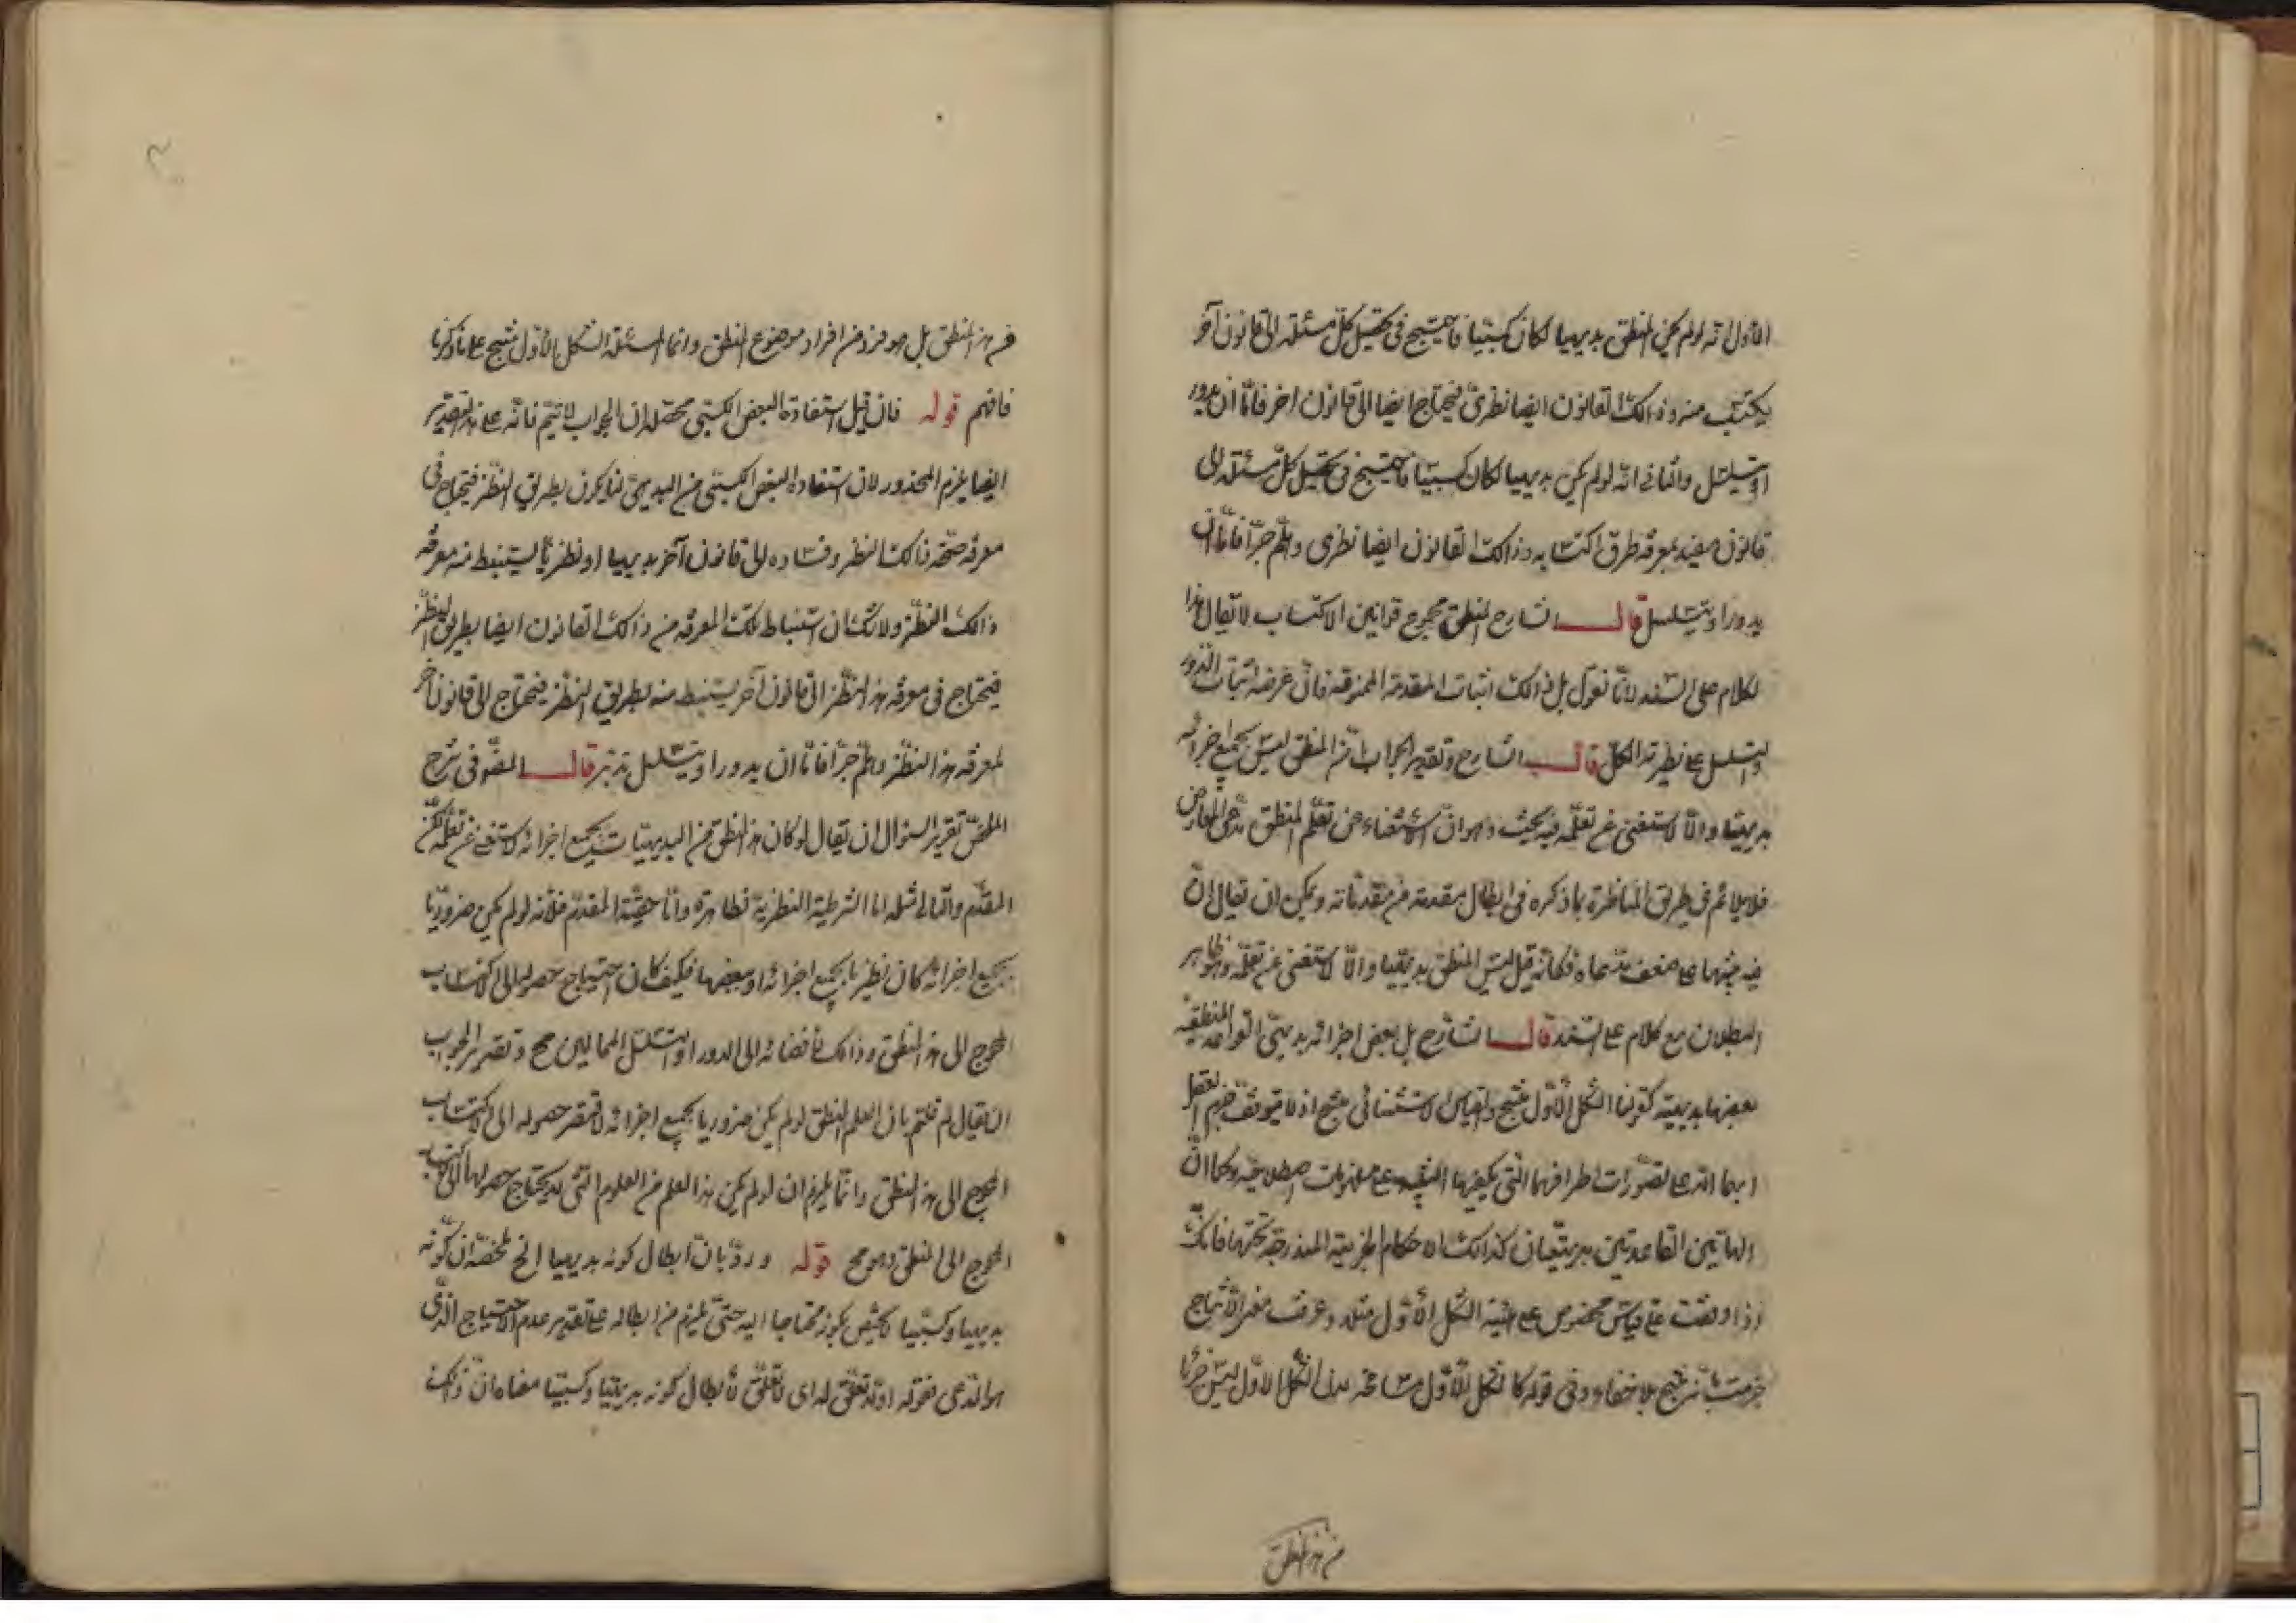 الاول انه لو لم يكن المنطق بديهيا لكان كسبيا فاحتيج فى تحصيل كل مسئلة الى قانون آخر
يكتسب منه وذالك القانون ايضا نظرى فيحتاج ايضا الى قانون اخر فامّا ان يدور
او يتسلسل والثانى انه لو لم يكن بديهيا لكان كسبيا فاحتيج فى تحصيل كل مسئلة الى
قانون مفيد لمعرفة طرق اكتسابه وذالك القانون ايضا نظرى وهلم جرّا فامّا ان
يدور او يتسلسل قال الشارح المنطق مجموع قوانين الاكتساب لا يقال هذا
لكلام على السند لانّا نقول بل ذالك اثبات المقدمة الممنوعة فان غرضه اثبات الدور
والتسلسل على نظرية الكل قال الشارح وتقرير الجواب انّ المنطق ليس بجميع اجزائه
بديهيّا والّا لاستغنى عن تعلّمه فيه بحث وهو انّ الاستغناء عن تعلّم المنطق مدّعى المعارض
فلا يلائم فى طريق المناظرة ما ذكره فى ابطال مقدمة من مقدماته ويمكن ان يقال انّ
فيه تنبيها على ضعف مدّعاه فكانه قيل ليس المنطق بديهيّا والّا لاستغنى عن تعلّمه وهو ظاهر
البطلان مع كلام على السند قال الشارح بل بعض اجزائه بديهىّ القواعد المنطقيّة
بعضها بديهية ككوننا الشكل الاوّل منتج والقياس الاستثنائى منتج اذ لا يتوقف جزم العقل
ايجابا الّا على تصوّرات اطرافها التى يكفيها التنبيه على مفهومات اصطلاحيّة وكما انّ
الهاتين القاعدتين بديهيتان كذالك الاحكام الجزئية المندرجة تحتها فانّك
اذا وقفت على قياس مخصوص على هيئة الشكل الاوّل مثلا وعرفت معنى الانتاج
جزمت بانّه منتج بلا خفاء وفى قوله كالشكل الاوّل مسامحة لان الشكل الاوّل ليس جزئا
من هذا المنطق
من هذا المنطق بل هو فرد من افراد موضوع المنطق وانما المسئلة الشكل الاوّل منتج على ما ذكرنا
فافهم قوله فان قيل استفادة البعض الكسبى محصله ان الجواب لا يتمّ فانّه على هذا التقدير
ايضا يلزم المحذور لان استفادة البعض الكسبى من البديهىّ انما يكون بطريق النظر فيحتاج فى
معرفة صحّة ذالك النظر وفساده الى قانون آخر بديهيا او نظريّا ليستنبط منه معرفة
ذالك النظر ولا شك ان استنباط تلك المعرفة من ذالك القانون ايضا بطريق النظر
فيحتاج فى معرفة هذا النظر الى قانون آخر يستنبط منه بطريق النظر فيحتاج الى قانون آخر
لمعرفة هذا النظر وهلم جرّا فامّا ان يدور او يتسلسل تدبّر قال المصنّف فى شرح
الملخّص تقرير السئوال ان يقال لو كان هذا المنطق من البديهيّات بجميع اجزائه لاستغنى عن تعلّمه لكن
المقدّم والتالى مثله اما الشرطية النظرية فظاهرة وامّا حقيّة المقدم فلانه لو لم يكن ضروريّا
بجميع اجزائه كان نظريّا بجميع اجزائه او بعضها فكيف كان احتياج حصوله الى الاكتساب
المحوج الى هذا المنطق وذالك لأفضائه الى الدور او التسلسل المحالين مح وتقرير الجواب
ان يقال لم قلتم بان العلم المنطق لو لم يكن ضروريا بجميع اجزائه لافتقر حصوله الى الاكتساب
المحوج الى هذا المنطق وانّما يلزم ان لو لم يكن هذا العلم من العلوم التى لا يحتاج حصولها الى الاكتساب
المحوج الى المنطق وهو مح قوله وردّ بانّ ابطال كونه بديهيا الخ ملخصّه ان كونه
بديهيا وكسبيّا لا يختص بكونه محتاجا اليه حتىّ يلزم من ابطاله على تقدير عدم الاحتياج الذّى
هو المدعى فقوله او لا تعلّق له اى لا تعلّق لأبطال كونه بديهيّا وكسبيّا معناه ان ذالك